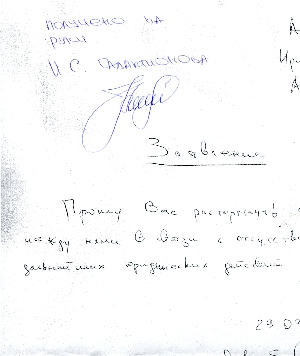 Получено на
руки
И С. Галактионова
А
Ири
А
Заявление
Прошу Вас расторгнуть
между нами в связи с отсутств
дальнейших юридических действий
29 09